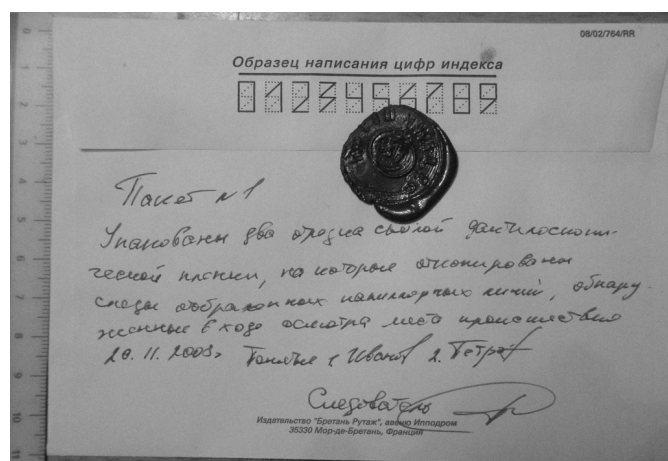 08/02/764/RR
Образец написания цифр индекса
0123456789
Пакет №1
Упакованы два отрезка светлой дактилоскопи-
ческой пленки, на которые откопированы
следы отображенных папиллярных линий, обнару-
женные в ходе осмотра места происшествия
20.11.2003г. Понятые 1. Иванов 2. Петров
Следователь
Издательство "Бретань Рутаж", авеню Ипподром
35330 Мор-де-Бретань, Франция